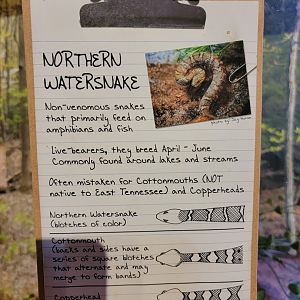 NORTHERN
WATERSNAKE
Non-venomous snakes
that primarily feed on
amphibians and fish
Live-bearers, they breed April - June
Commonly found around lakes and streams
Often mistaken for Cottonmouths (NOT
native to East Tennessee) and Copperheads
Northern Watersnake
(blotches of color)
Cottonmouth
(backs and sides have a
series of square blotches
that alternate and may
merge to form bands)
Copperhead